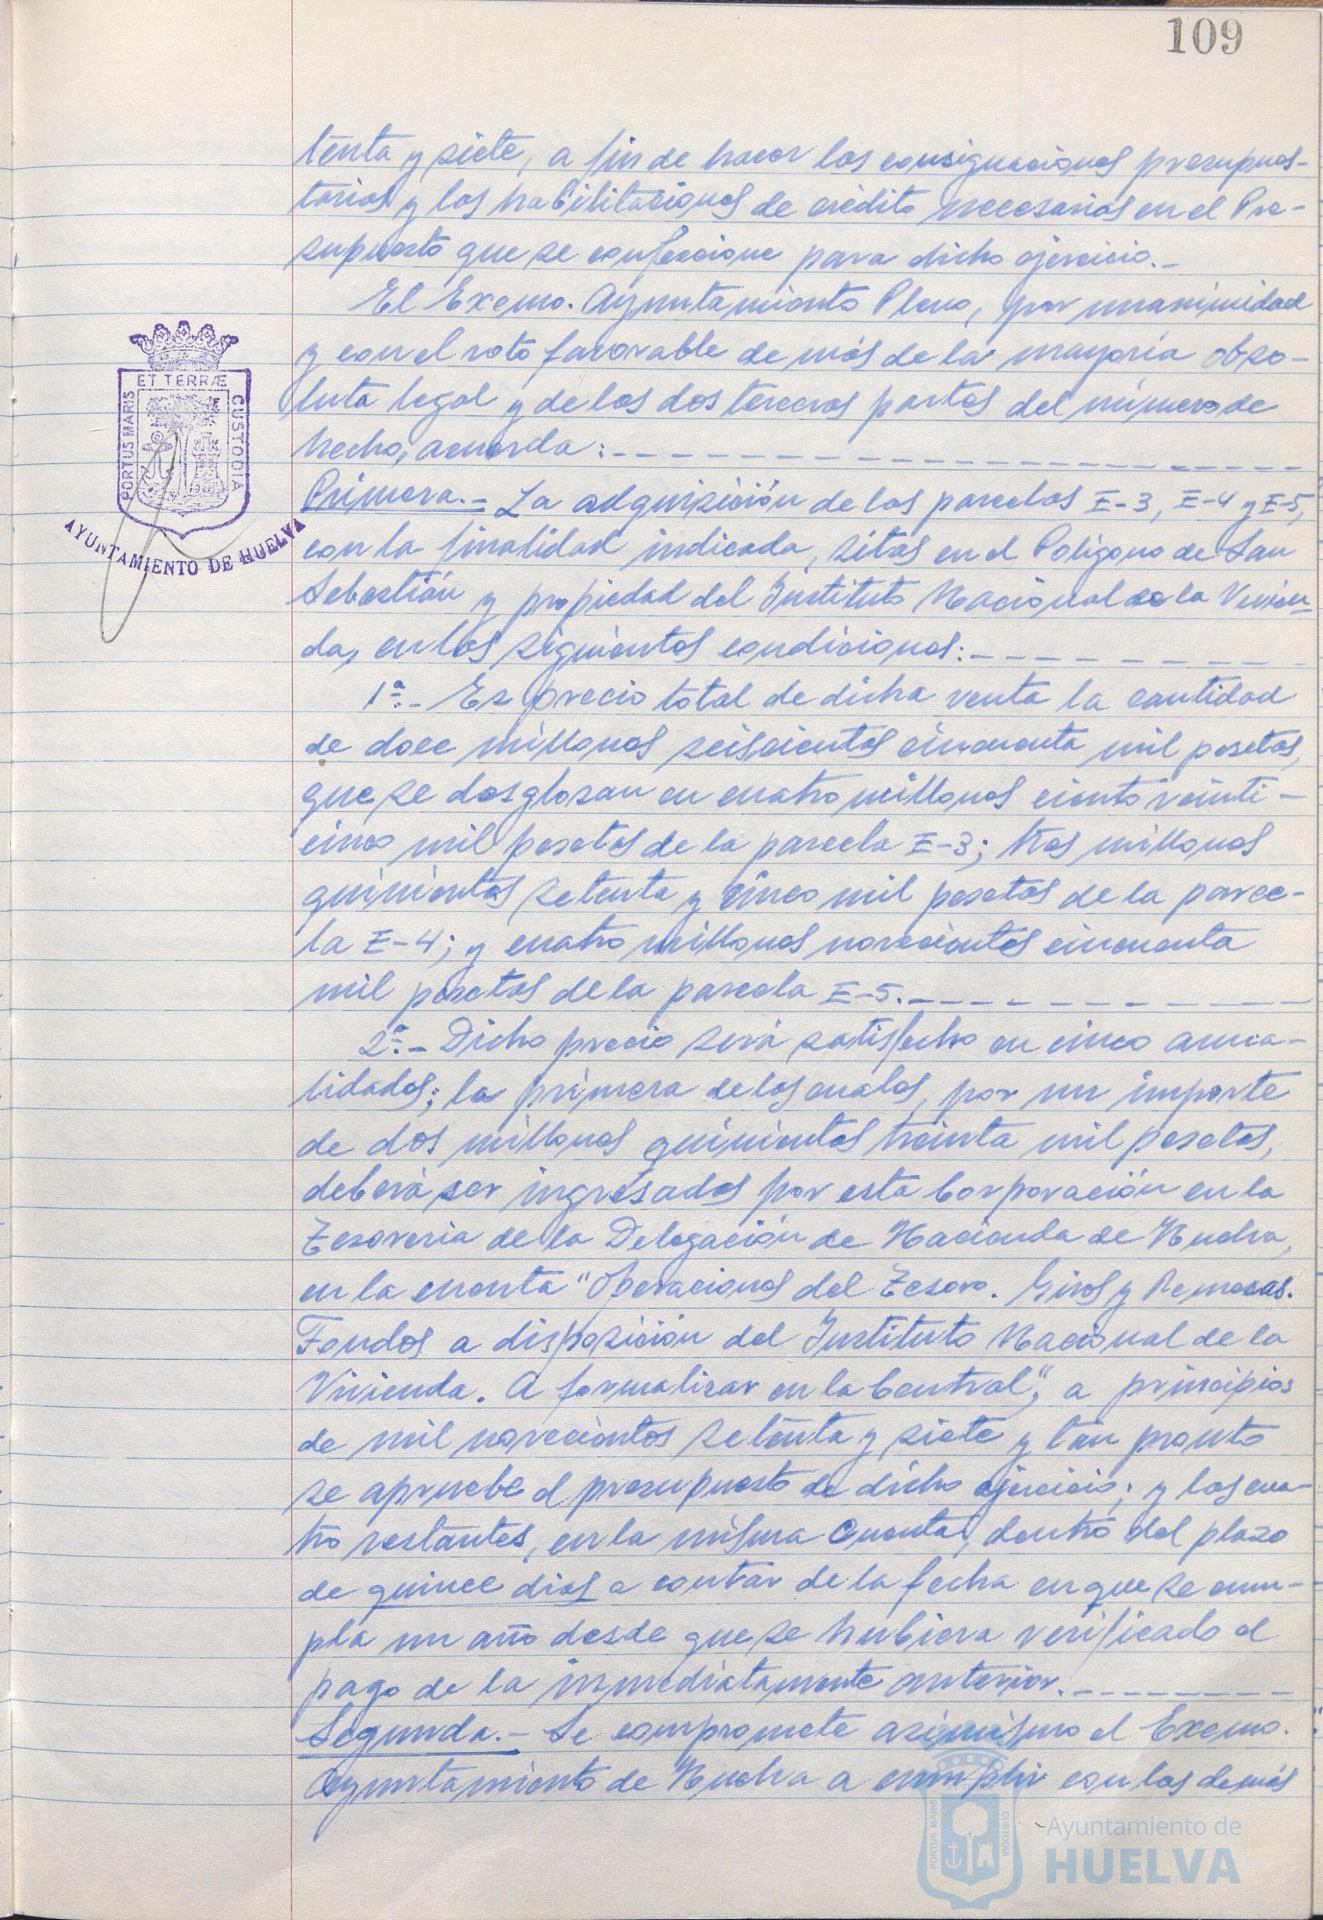 109
tenta y siete, a fin de hacer las consignaciones presupues-
tarias y las habilitaciones de crédito necesarias en el Pre-
supuesto que se confeccione para dicho ejercicio.-
El Excmo. Ayuntamiento Pleno, por unanimidad
y con el voto favorable de más de la mayoría abso-
luta legal y de las dos terceras partes del número de
hecho, acuerda:
Primera.- La adquisición de las parcelas E-3, E-4 y E-5,
con la finalidad indicada, sitas en el Polígono de San
Sebastián y propiedad del Instituto Nacional de la Vivien-
da, en las siguientes condiciones:
1ª.- Es precio total de dicha venta la cantidad
de doce millones seiscientas cincuenta mil pesetas,
que se desglosan en cuatro millones ciento veinti-
cinco mil pesetas de la parcela E-3; tres millones
quinientas setenta y cinco mil pesetas de la parce-
la E-4; y cuatro millones novecientas cincuenta
mil pesetas de la parcela E-5.
2ª.- Dicho precio será satisfecho en cinco anua-
lidades; la primera de las cuales, por un importe
de dos millones quinientas treinta mil pesetas,
deberá ser ingresadas por esta Corporación en la
Tesorería de la Delegación de Hacienda de Huelva,
en la cuenta "Operaciones del Tesoro. Giros y Remesas.
Fondos a disposición del Instituto Nacional de la
Vivienda. A formalizar en la Central", a principios
de mil novecientos setenta y siete y tan pronto
se apruebe el presupuesto de dicho ejercicio; y las cua-
tro restantes, en la misma cuenta, dentro del plazo
de quince días a contar de la fecha en que se cum-
pla un año desde que se hubiera verificado el
pago de la inmediatamente anterior.
Segunda.- Se compromete asimismo el Excmo.
Ayuntamiento de Huelva a cumplir con las demás
PORTUS MARIS
ET TERRÆ
CUSTODIA
AYUNTAMIENTO DE HUELVA
PORTUS MARIS
CUSTODIA
Ayuntamiento de
HUELVA